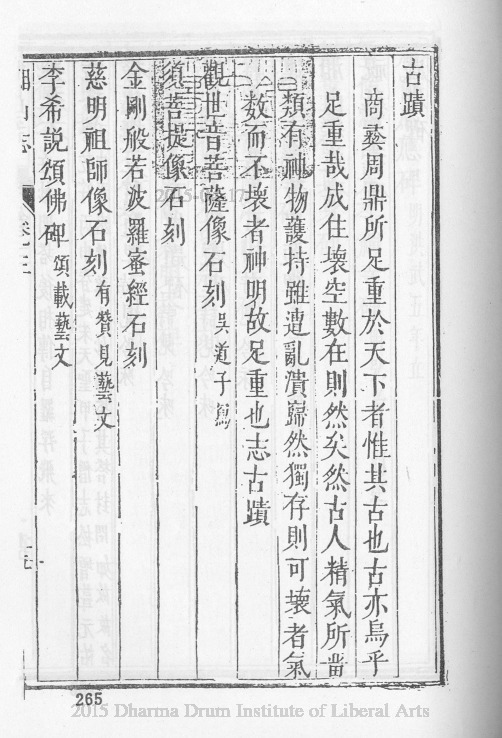 古蹟
商彝周鼎所足重於天下者惟其古也古亦烏乎
足重哉成住壞空數在則然矣然古人精氣所
類有神物護持雖遭亂潰巋然獨存則可壞者氣
数而不壞者神明故足重也志古蹟
觀世音菩薩像石刻 吳道子寫
須菩提像石刻
金剛般若波羅蜜經石刻
慈明祖師像石刻 有贊見藝文
李希說頌佛碑 頌載藝文
山志 卷之三
265
2015 Dharma Drum Institute of Liberal Arts